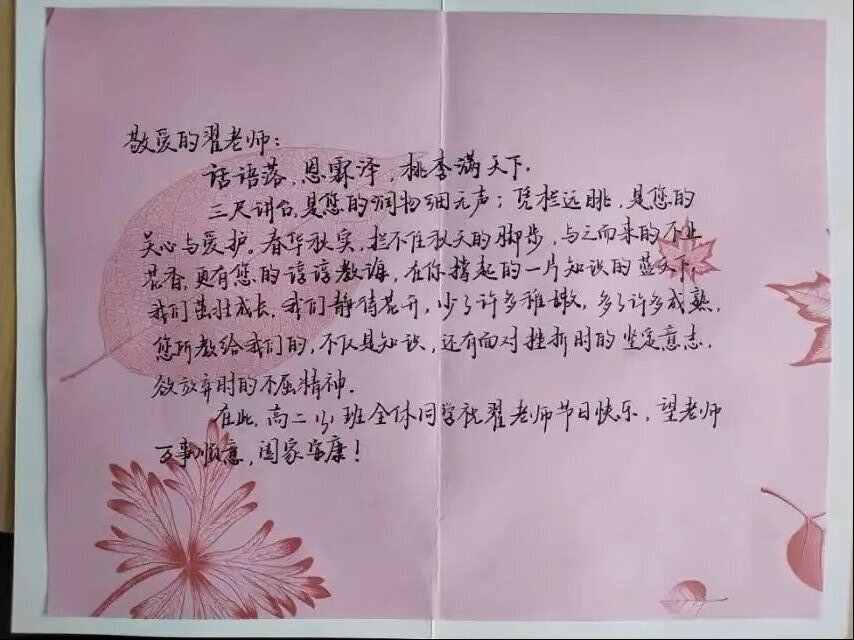 敬爱的翟老师：
话语落，恩霖泽，桃李满天下.
三尺讲台，是您的润物细无声；凭栏远眺，是您的
关心与爱护。春华秋实，拦不住秋天的脚步，与之而来的不止
花香，更有您的谆谆教诲，在你撑起的一片知识的蓝天下，
我们茁壮成长，我们静待花开，少了许多稚嫩，多了许多成熟，
您所教给我们的，不仅是知识，还有面对挫折时的坚定意志，
欲放弃时的不屈精神.
在此，高二 班全体同学祝翟老师节日快乐，望老师
万事顺意，阖家安康！